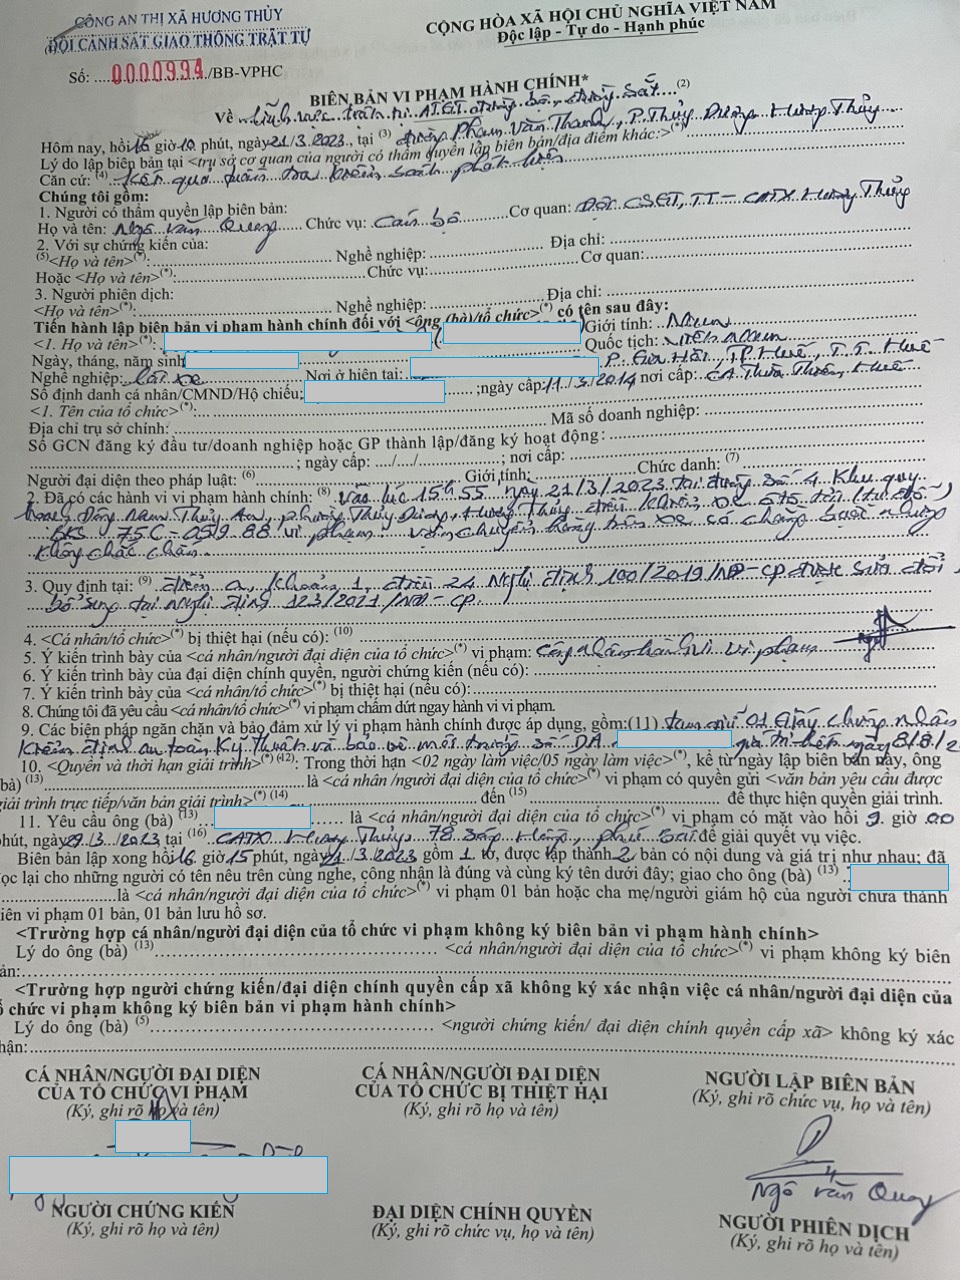 CÔNG AN THỊ XÃ HƯƠNG THỦY
ĐỘI CẢNH SÁT GIAO THÔNG TRẬT TỰ
Số: ....0000994./BB-VPHC
CỘNG HÒA XÃ HỘI CHỦ NGHĨA VIỆT NAM
Độc lập - Tự do - Hạnh phúc
BIÊN BẢN VI PHẠM HÀNH CHÍNH*
Về lĩnh vực trật tự ATGT đường bộ, đường sắt (2)
Hôm nay, hồi 16 giờ 10 phút, ngày 21/3/2023, tại (3) đường Phạm Văn Thanh, P. Thủy Dương, Hương Thủy
Lý do lập biên bản tại <trụ sở cơ quan của người có thẩm quyền lập biên bản/địa điểm khác:>(*)
Căn cứ: (4) Kết quả tuần tra kiểm soát phát hiện
Chúng tôi gồm:
1. Người có thẩm quyền lập biên bản:
Họ và tên: Ngô Văn Quang Chức vụ: Cán bộ Cơ quan: Đội CSGT, TT - CATX Hương Thủy
2. Với sự chứng kiến của:
(5)<Họ và tên>(*): Nghề nghiệp: Địa chỉ:
Hoặc <Họ và tên>(*): Chức vụ: Cơ quan:
3. Người phiên dịch:
<Họ và tên>(*): Nghề nghiệp: Địa chỉ:
Tiến hành lập biên bản vi phạm hành chính đối với <ông (bà)/tổ chức>(*) có tên sau đây:
<1. Họ và tên>(*): Giới tính: Nam
Ngày, tháng, năm sinh Quốc tịch: Việt Nam
Nghề nghiệp: Lái xe Nơi ở hiện tại: TP Huế, T.T. Huế
Số định danh cá nhân/CMND/Hộ chiếu: ;ngày cấp: 11/3/2014 nơi cấp: CA Thừa Thiên Huế
<1. Tên của tổ chức>(*):
Địa chỉ trụ sở chính: Mã số doanh nghiệp:
Số GCN đăng ký đầu tư/doanh nghiệp hoặc GP thành lập/đăng ký hoạt động:
; ngày cấp: ..../..../ ; nơi cấp:
Người đại diện theo pháp luật: (6) Giới tính: Chức danh: (7)
2. Đã có các hành vi vi phạm hành chính: (8) Vào lúc 15h55 ngày 21/3/2023 tại đường số 4 Khu quy
hoạch Đông Nam Thủy An, phường Thủy Dương, Hương Thủy điều khiển xe ôtô tải (tự đổ)
BKS 75C-059.88 vi phạm: Vận chuyển hàng trên xe có chằng buộc nhưng
không chắc chắn
3. Quy định tại: (9) điểm a, khoản 1, điều 24 Nghị định 100/2019/NĐ-CP được sửa đổi
bổ sung tại Nghị định 123/2021/NĐ-CP.
4. <Cá nhân/tổ chức>(*) bị thiệt hại (nếu có): (10)
5. Ý kiến trình bày của <cá nhân/người đại diện của tổ chức>(*) vi phạm: Công nhận hành vi vi phạm
6. Ý kiến trình bày của đại diện chính quyền, người chứng kiến (nếu có):
7. Ý kiến trình bày của <cá nhân/tổ chức>(*) bị thiệt hại (nếu có):
8. Chúng tôi đã yêu cầu <cá nhân/tổ chức>(*) vi phạm chấm dứt ngay hành vi vi phạm.
9. Các biện pháp ngăn chặn và bảo đảm xử lý vi phạm hành chính được áp dụng, gồm:(11) tạm giữ 01 giấy chứng nhận
kiểm định an toàn kỹ thuật và bảo vệ môi trường số DA giá trị hết ngày 8/8/2
10. <Quyền và thời hạn giải trình>(*) (12): Trong thời hạn <02 ngày làm việc/05 ngày làm việc>(*), kể từ ngày lập biên bản này, ông
bà) (13) là <cá nhân /người đại diện của tổ chức>(*) vi phạm có quyền gửi <văn bản yêu cầu được
giải trình trực tiếp/văn bản giải trình>(*) (14) đến (15) để thực hiện quyền giải trình.
11. Yêu cầu ông (bà) (13) là <cá nhân/người đại diện của tổ chức>(*) vi phạm có mặt vào hồi 9 giờ 00
phút, ngày 29/3/2023 tại (16) CATX Hương Thủy 78 Sóng Hồng, Phú Bài để giải quyết vụ việc.
Biên bản lập xong hồi 16 giờ 15 phút, ngày 21/3/2023 gồm 1 tờ, được lập thành 2 bản có nội dung và giá trị như nhau; đã
đọc lại cho những người có tên nêu trên cùng nghe, công nhận là đúng và cùng ký tên dưới đây; giao cho ông (bà) (13)
là <cá nhân/người đại diện của tổ chức>(*) vi phạm 01 bản hoặc cha mẹ/người giám hộ của người chưa thành
iên vi phạm 01 bản, 01 bản lưu hồ sơ.
<Trường hợp cá nhân/người đại diện của tổ chức vi phạm không ký biên bản vi phạm hành chính>
Lý do ông (bà) (13) <cá nhân/người đại diện của tổ chức>(*) vi phạm không ký biên
ản:
<Trường hợp người chứng kiến/đại diện chính quyền cấp xã không ký xác nhận việc cá nhân/người đại diện của
ổ chức vi phạm không ký biên bản vi phạm hành chính>
Lý do ông (bà) (5) <người chứng kiến/ đại diện chính quyền cấp xã> không ký xác
hận:
CÁ NHÂN/NGƯỜI ĐẠI DIỆN
CỦA TỔ CHỨC VI PHẠM
(Ký, ghi rõ họ và tên)
CÁ NHÂN/NGƯỜI ĐẠI DIỆN
CỦA TỔ CHỨC BỊ THIỆT HẠI
(Ký, ghi rõ họ và tên)
NGƯỜI LẬP BIÊN BẢN
(Ký, ghi rõ chức vụ, họ và tên)
Ngô Văn Quang
NGƯỜI CHỨNG KIẾN
(Ký, ghi rõ họ và tên)
ĐẠI DIỆN CHÍNH QUYỀN
(Ký, ghi rõ chức vụ, họ và tên)
NGƯỜI PHIÊN DỊCH
(Ký, ghi rõ họ và tên)